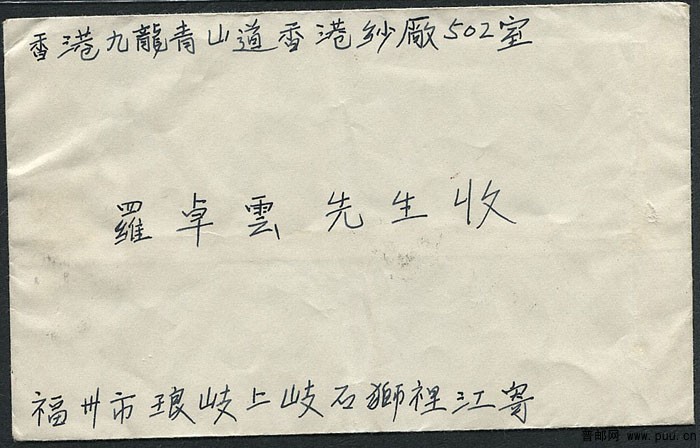 香港九龍青山道香港紗廠502室
羅卓雲先生收
福州市琅岐上岐石獅裡江寄
普邮网 www.puu.cn